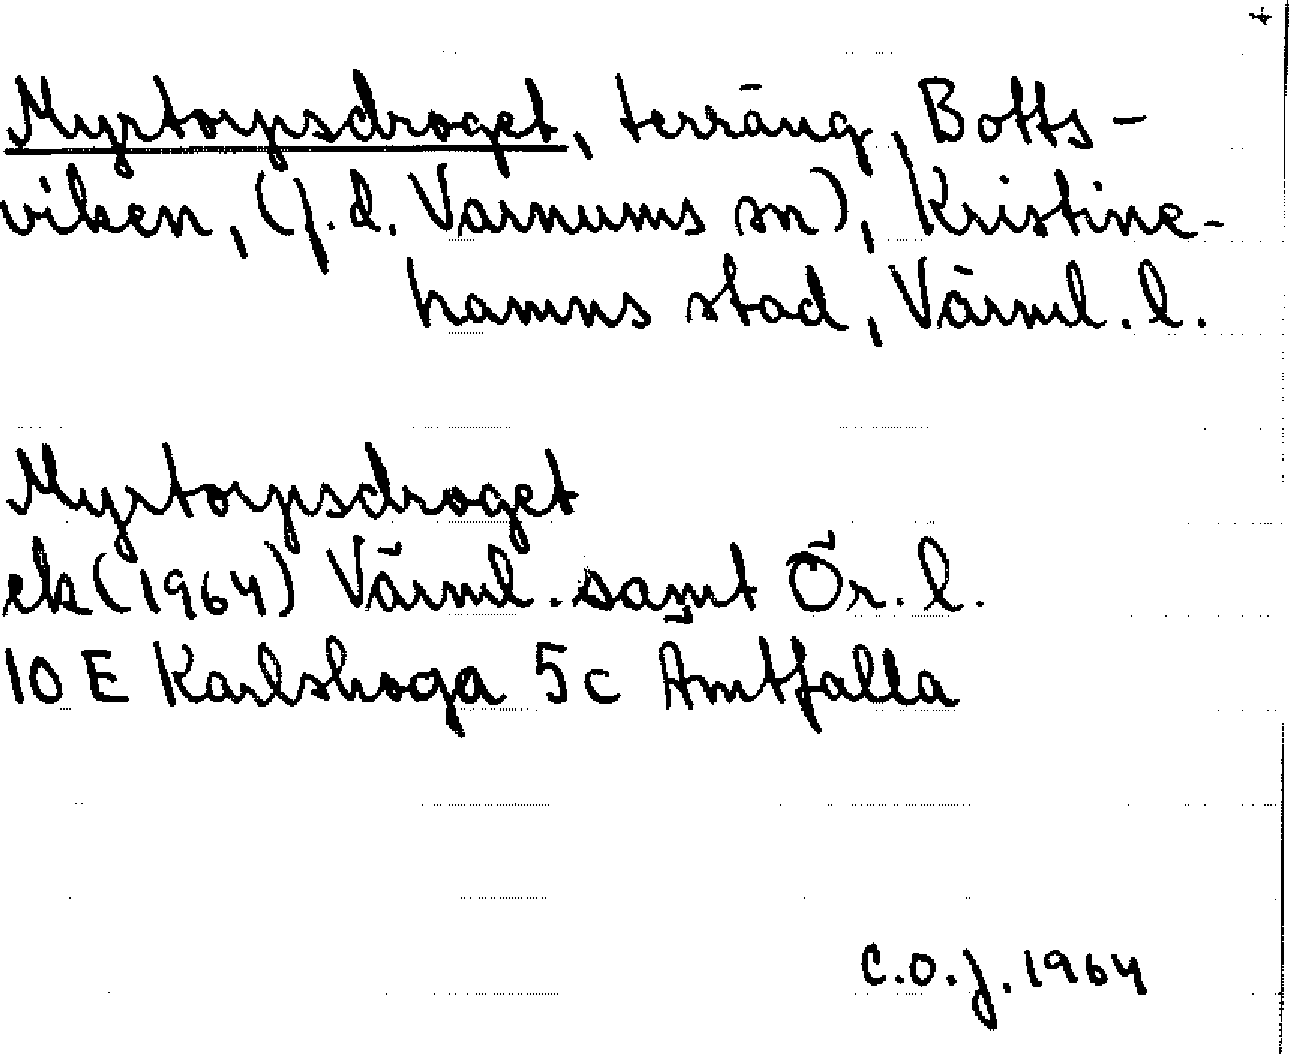 +
Myrtorpsdroget, terräng, Botts-
viken, (f.d. Varnums sn), Kristine-
hamns stad, Värml. l.
Myrtorpsdroget
ek (1964) Värml. samt Ör. l.
10 E Karlskoga 5c Ämtfalla
C.O.J. 1964